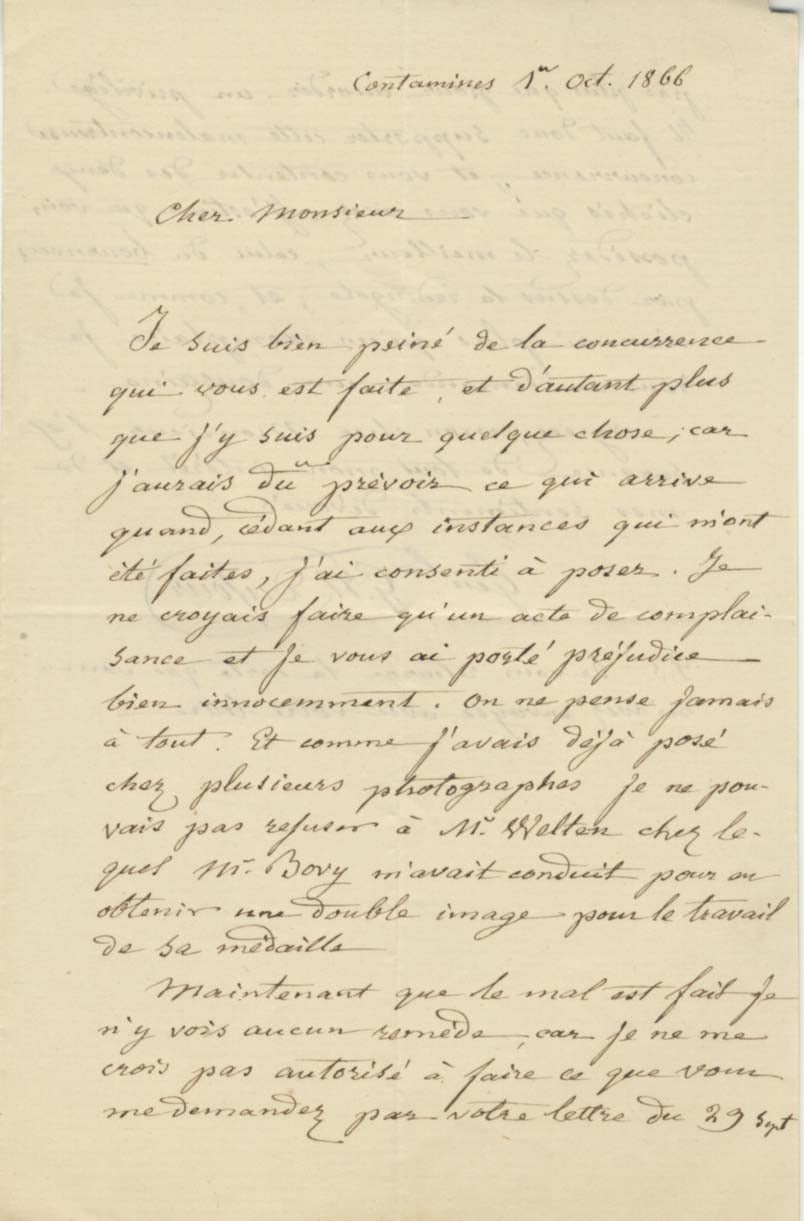 Contamines 1er. Oct. 1866
Cher Monsieur
Je suis bien peiné de la concurrence
qui vous est faite, et d'autant plus
que j'y suis pour quelque chose; car
j'aurais du prévoir ce qui arrive
quand, cédant aux instances qui m'ont
été faites, j'ai consenti à poser. Je
ne croyais faire qu'un acte de complai-
sance et je vous ai porté préjudice
bien innocemment. On ne pense jamais
à tout. Et comme j'avais déjà posé
chez plusieurs photographes je ne pou-
vais pas refuser à Mr. Welten chez le-
quel Mr. Bovy m'avait conduit pour en
obtenir une double image pour le travail
de sa médaille
Maintenant que le mal est fait je
n'y vois aucun remède, car je ne me
crois pas autorisé à faire ce que vous
me demandez par votre lettre du 29 Sept